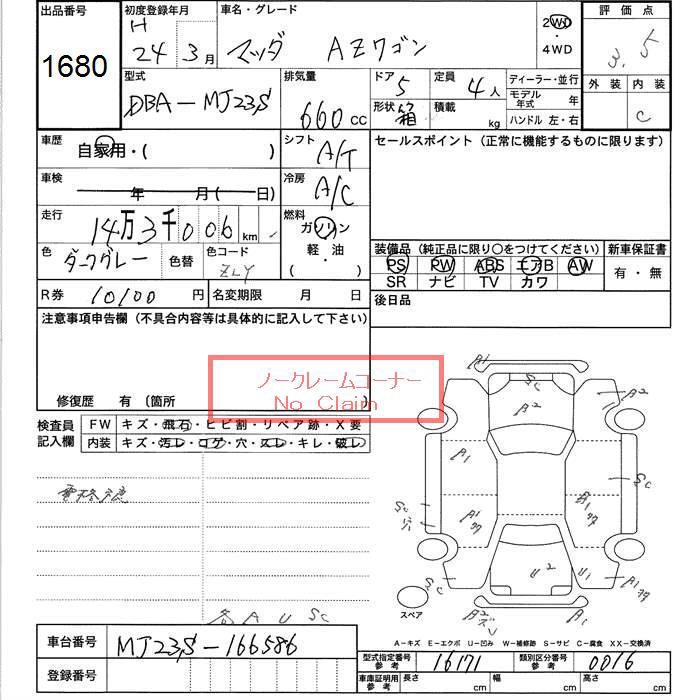 出品番号 初度登録年月 車名・グレード 評価点
1680 H 24年3月 マツダ AZワゴン 2WD・4WD 3.5
外装 内装 C
型式 排気量 ドア 定員 ディーラー・並行
DBA-MJ23S 660 cc 5 4人 モデル年式 年
形状 箱 積載 kg ハンドル 左・右
車歴 シフト セールスポイント(正常に機能するものに限ります)
自家用・( ) A/T
車検 冷房
年 月( 日) A/C
走行 燃料
14万3千006km ガソリン・軽油 ( )
色 色替 色コード
ダークグレー ZLY
装備品(純正品に限り○をつけてください) 新車保証書
PS PW ABS エアB AW 有・無
SR ナビ TV カワ
R券 10100円 名変期限 月 日 後日品
注意事項申告欄(不具合内容等は具体的に記入して下さい)
ノークレームコーナー
No Claim
修復歴 有(箇所
検査員記入欄 FW キズ・飛石・ヒビ割・リペア跡・X要
内装 キズ・汚レ・コゲ・穴・スレ・キレ・破レ
A1
Sc
A2 A2
A1
Sc
Sc
A1 A1
U2 U1
Sc A1
スペア
A2 A1
各 A U Sc
A-キズ E-エクボ U-凹み W-補修跡 S-サビ C-腐食 XX-交換済
車台番号 MJ23S-166586
型式指定番号 参考 16171 類別区分番号 参考 0016
登録番号
車庫証明用 参考 長さ cm 幅 cm 高さ cm